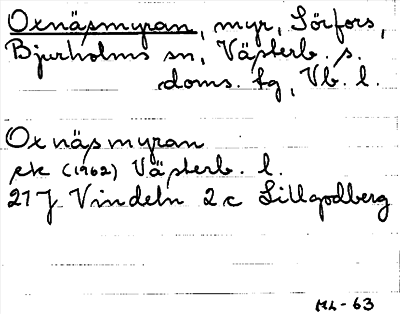 Oxnäsmyran, myr, Sörfors,
Bjurholms sn, Västerb. s.
doms. tg, Vb. l.
Oxnäsmyran
ek (1962) Västerb. l.
21 J Vindeln 2 c Lillgodberg
ML-63